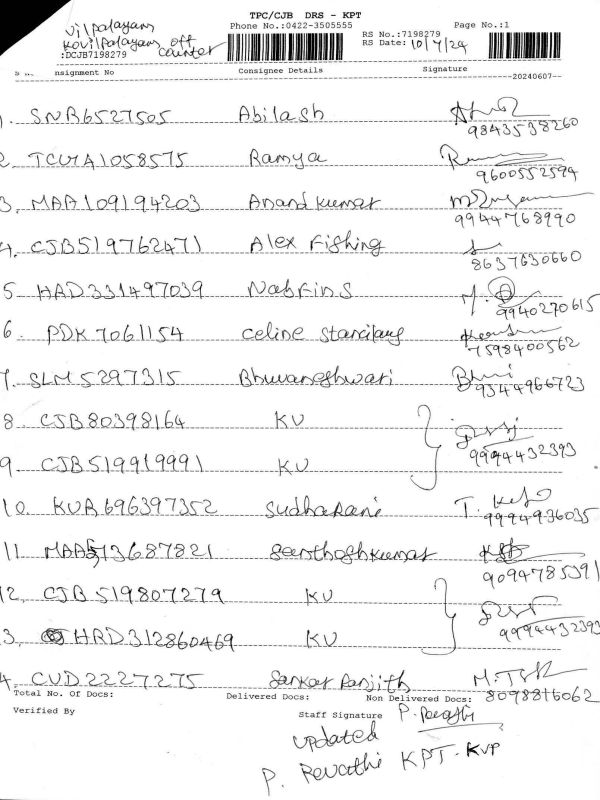 TPC/CJB DRS - KPT
Vilpalayam
Kovilpalayam off
counter
:DCJB7198279
Phone No.:0422-3505555
Page No.:1
RS No.:7198279
RS Date: 10/7/24
nsignment No Consignee Details Signature
20240607
1. SNB6527505 Abilash
9843538260
2. TCUTA1058575 Ramya
9600552594
3. MAA109194203 Anand kumar
9944768990
4. CJB519762471 Alex Fishing
8637630660
5 HAD331497039 Nabfins
9940270615
6. PDK7061154 celine
7598400562
7. SLM5297315 Bhuvaneshwari
9344966723
8 CJB80398164 KU
9. CJB519919991 KU
9994432393
10. KUR696397352 Sudharani
9994936035
11. MAA513687821 Santhoshkumar
9094785391
12. CJB519807279 KU
3. HRD312860469 KU
9994432393
4. CUD2227275 Sankar Ranjith
8098816062
Total No. Of Docs: Delivered Docs: Non Delivered Docs:
Verified By Staff Signature P. Revathi
updated
P. Revathi KPT-KVP